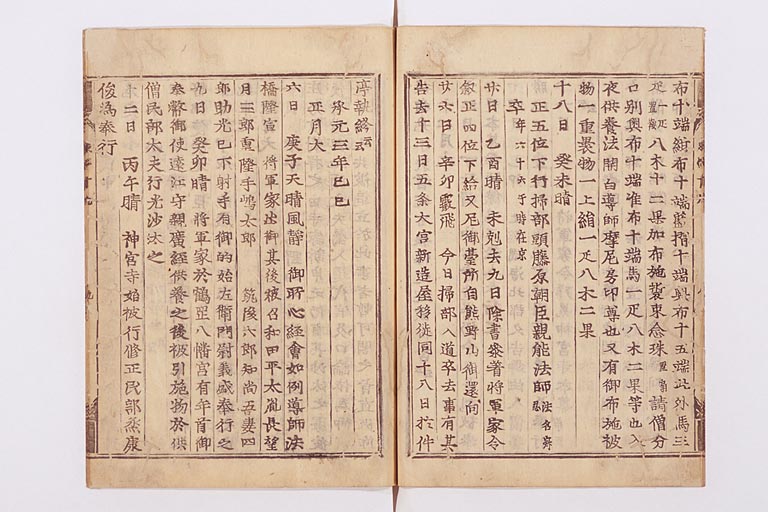 布十端紺布十端藍摺十端興布十五端此外馬三
疋 置鞍 一疋 八木十二果加布施裝束念珠 請僧分
口別奥布十端准布十端馬一疋八木二果等也入
夜供養法開白導師摩尼房印尊也又有御布施被
物一重裹物一上絹一疋八木二果
十八日 癸未晴
正五位下行掃部頭藤原朝臣親能法師 法名寂忍
卒 年六十六于時在京
廿日 乙酉晴 未剋去九日除書參著將軍家令
叙正四位下給又尼御臺所自熊野山御還向
廿六日 辛卯霰飛 今日掃部入道卒去事有其
告去十三日五条大宮新造屋移徙同十八日於件
序執終云云
承元三年己巳
正月大
六日 庚子天晴風靜 御所心經會如例導師法
橋隆宣 將軍家出御其後被召和田平太胤長望
月三郎重隆手嶋太郎 筑後六郎知尚吾妻四
郎助光已下射手有御的始左衛門尉義盛奉行之
九日 癸卯晴 將軍家於鶴岳八幡宮有年首御
奉幣御使遠江守親廣經供養之後被引施物於供
僧民部大夫行光沙汰之
十二日 丙午晴 神宮寺始被行修正民部丞康
俊為奉行